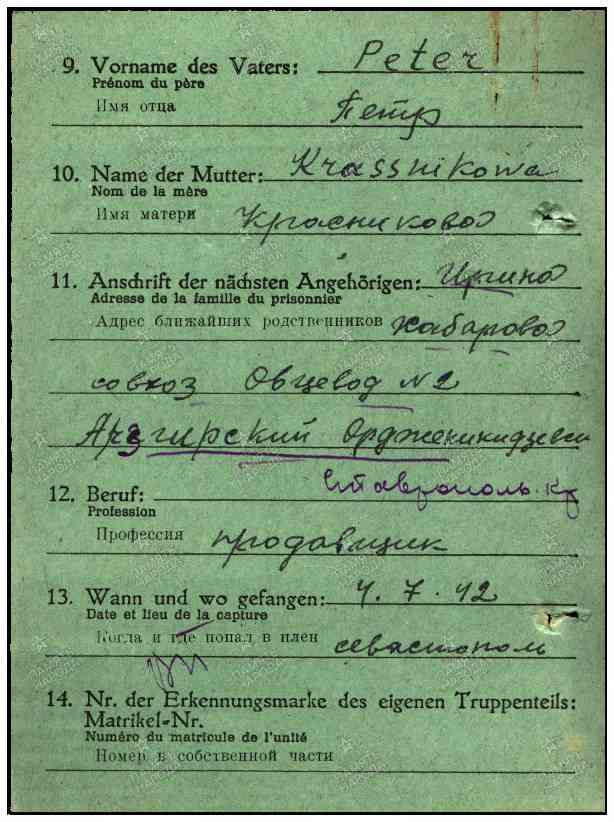 9. Vorname des Vaters: Peter
Prénom du père
Имя отца
Петр
10. Name der Mutter: Krassnikowa
Nom de la mère
Имя матери Красникова
11. Anschrift der nächsten Angehörigen: Ирина
Adresse de la famille du prisonnier
Адрес ближайших родственников Хабарова
совхоз Овцевод №2
Арзгирский Орджоникидзевск
Ставрополь. кр
12. Beruf:
Profession
Профессия продавщик
13. Wann und wo gefangen: 4. 7. 42
Date et lieu de la capture
Когда и где попал в плен севастополь
14. Nr. der Erkennungsmarke des eigenen Truppenteils:
Matrikel=Nr.
Numéro du matricule de l'unité
Номер в собственной части